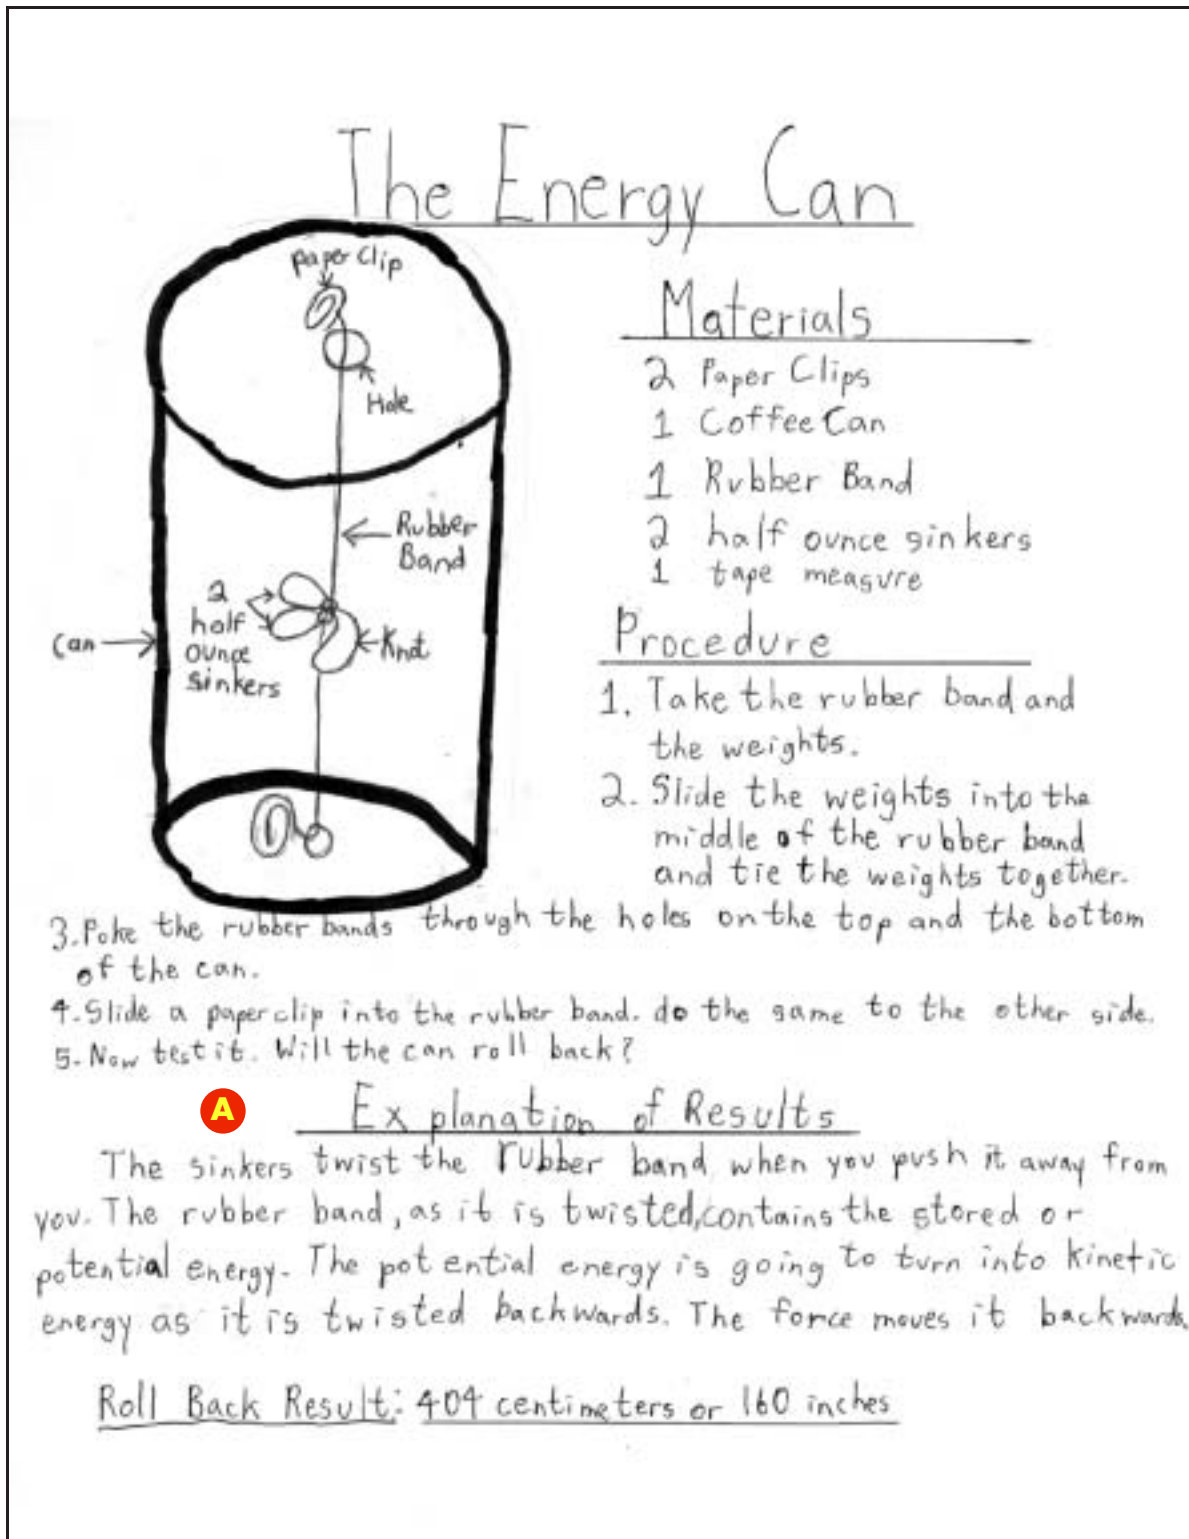 The Energy Can
paper clip
Hole
Rubber
Band
2
half
ounce
sinkers
Can
Knot
Materials
2 Paper Clips
1 Coffee Can
1 Rubber Band
2 half ounce sinkers
1 tape measure
Procedure
1. Take the rubber band and
the weights.
2. Slide the weights into the
middle of the rubber band
and tie the weights together.
3. Poke the rubber bands through the holes on the top and the bottom
of the can.
4. Slide a paperclip into the rubber band. do the same to the other side.
5. Now test it. Will the can roll back?
A
Explanation of Results
The sinkers twist the rubber band when you push it away from
you. The rubber band, as it is twisted, contains the stored or
potential energy. The potential energy is going to turn into kinetic
energy as it is twisted backwards. The force moves it backwards.
Roll Back Result: 404 centimeters or 160 inches